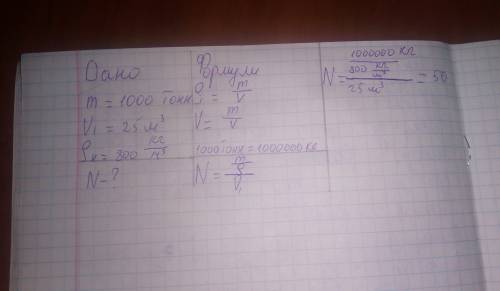 Дано
m = 1000 тонн
V₁ = 25 м³
ρₖ = 800 кг/м³
N - ?
Формули
ρ = m/V
V = m/V
1000 тонн = 1000000 кг
N = (m/ρ)/V₁
N = (1000000 кг / 800 кг/м³) / 25 м³ = 50